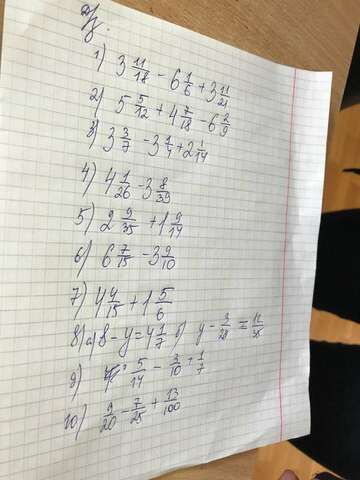 Д/з.
1) 3 11/18 - 6 1/6 + 3 11/21
2) 5 5/12 + 4 7/18 - 6 2/9
3) 3 3/7 - 3 1/4 + 2 1/14
4) 4 1/26 - 3 8/39
5) 2 9/35 + 1 9/14
6) 6 7/15 - 3 9/10
7) 4 4/15 + 1 5/6
8) а) 8 - y = 4 1/7 б) y - 3/28 = 11/35
9) 5/14 - 3/10 + 1/7
10) 9/20 - 7/25 + 13/100